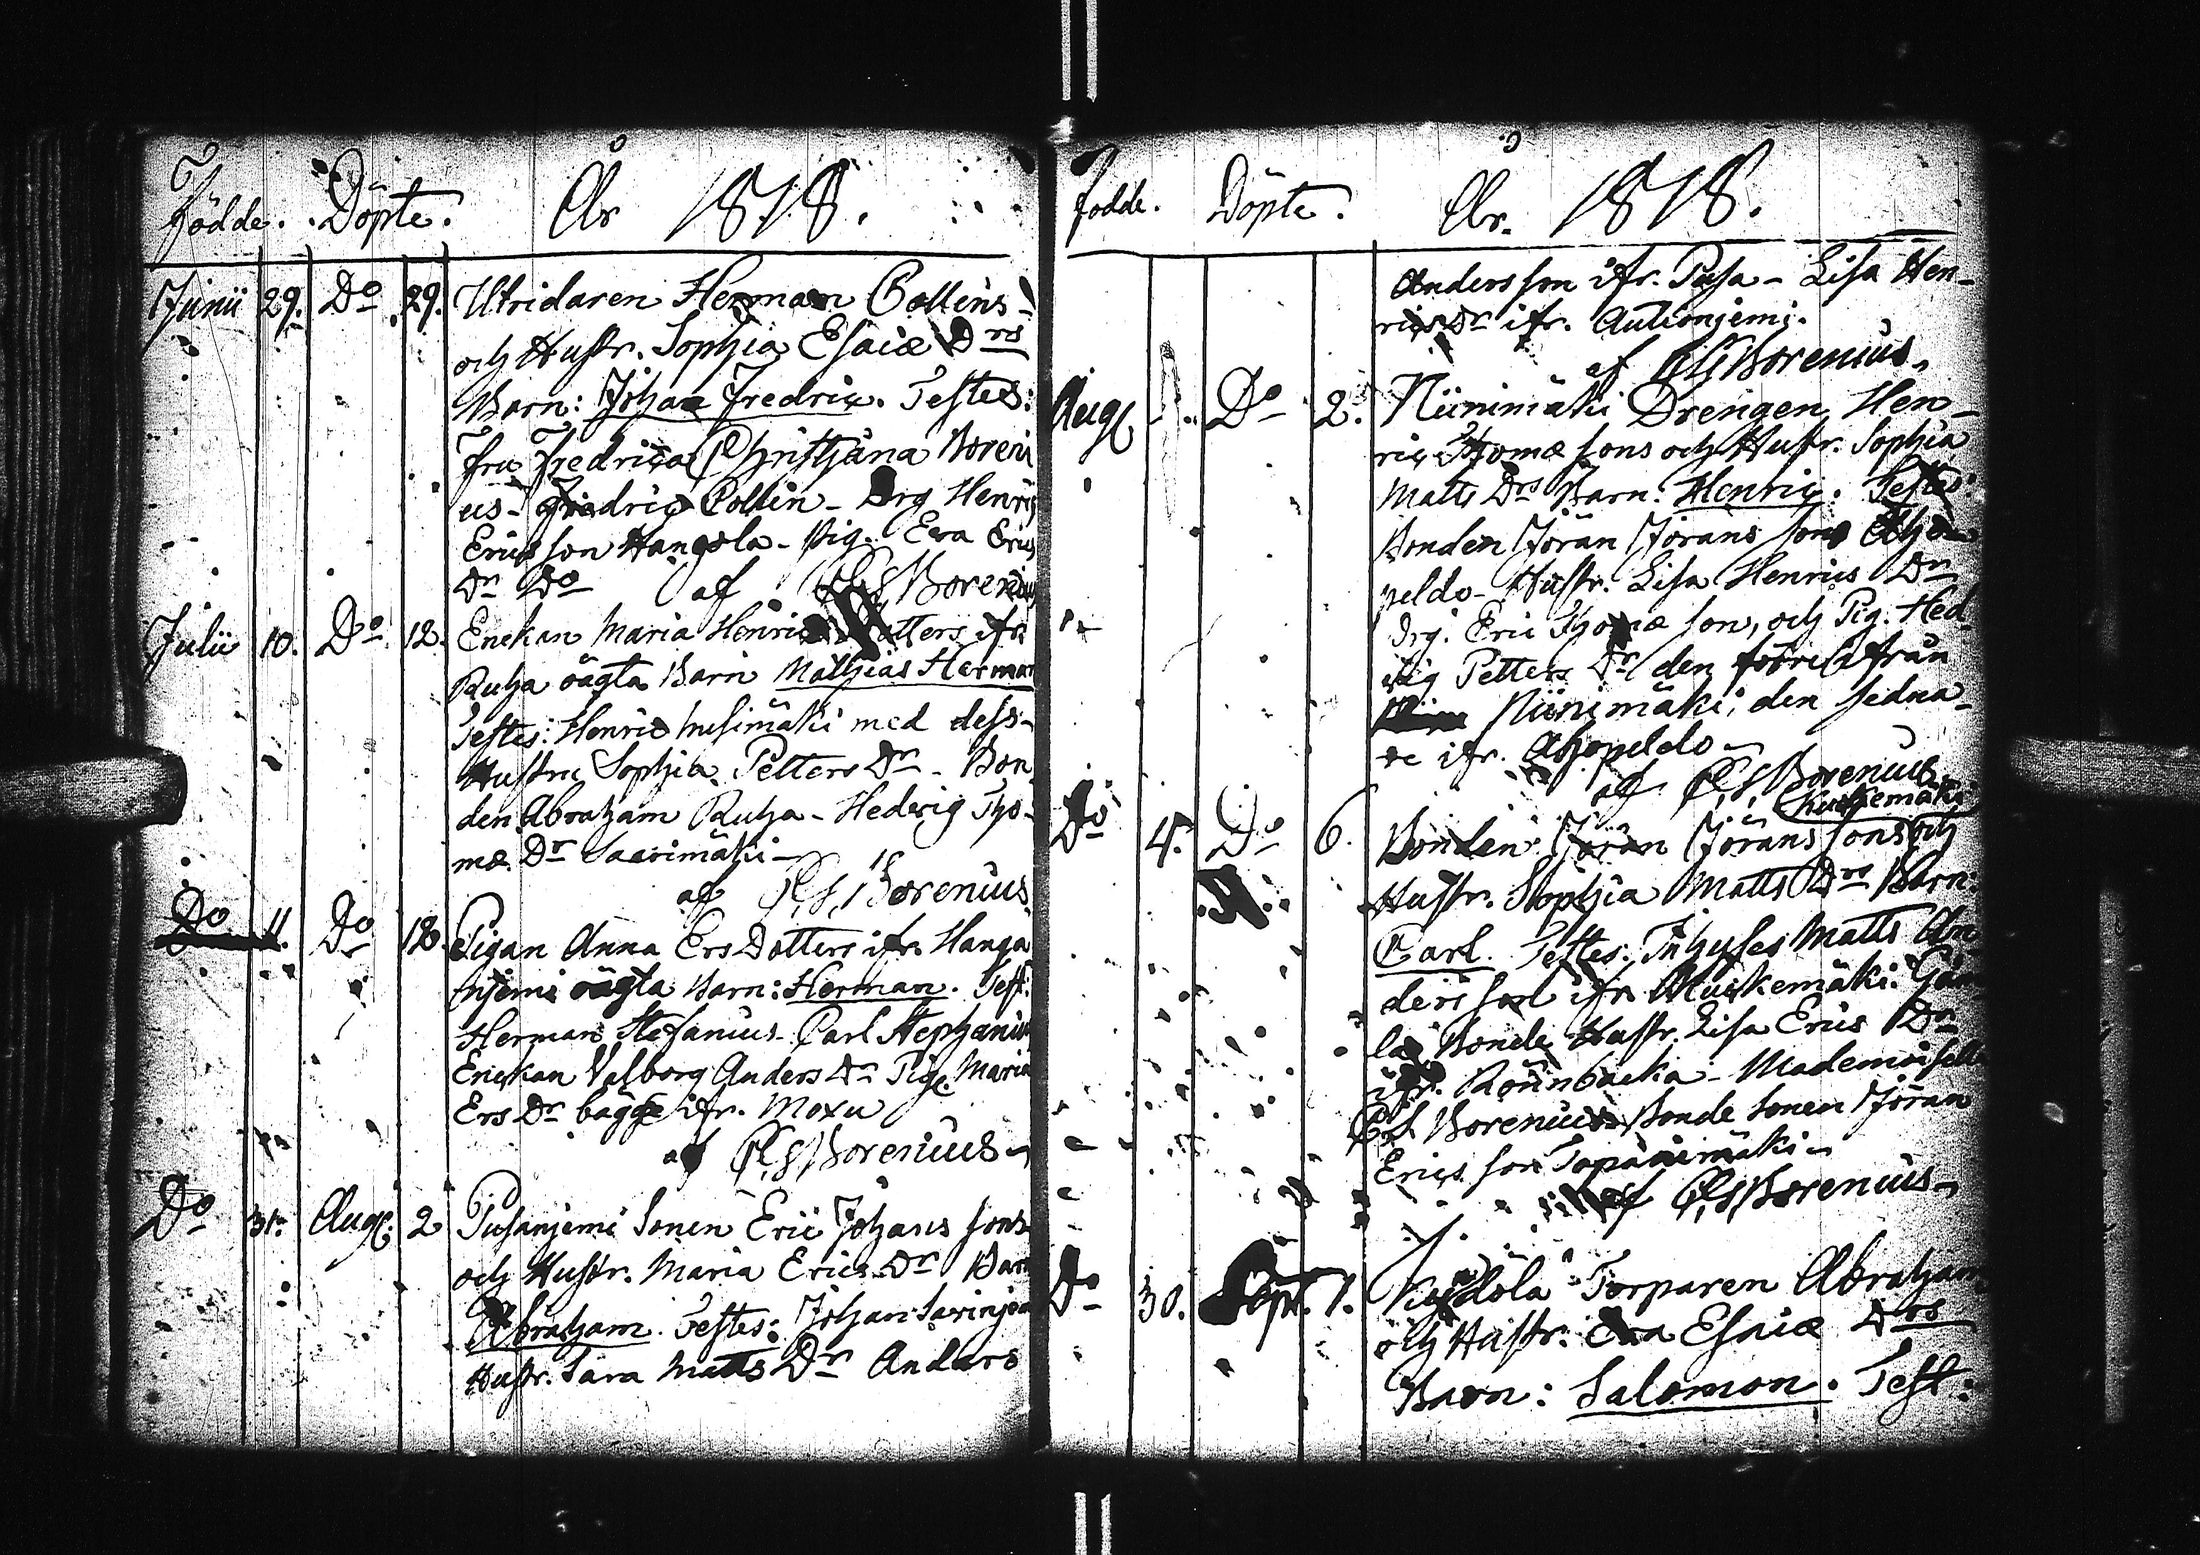 Födde. Döpte. År 1818.
Junii 29. Do 29. Utridaren Herman Collins
och Hustr. Sophia Esaiæ Drs
Barn: Johan Fredric. Testes:
Fru Fredrica Christjana Boreni
us - Fredric Collin - Drg Henric
Ericsson Hangola - Pig. Eva Erics
Dr Do af C.G. Borenius
Julii 10. Do 12. Enekan Maria Henrics Dotters ifr.
Ruha oägta Barn Mathias Herman
Testes: Henric med dess
Hustru Sophia Petters Dr - Bon
den Abraham Ruha - Hedvig Tho-
mæ Dr Saarimäki -
af C.G. Borenius
Do 11. Do 12. Pigan Anna Ers Dotters ifr. Hanga
njemi oägta Barn: Herman. Test:
Herman Stefanius - Carl Stephanius
Enekan Valborg Anders Dr Pig. Maria
Ers Dr bägge ifr. Moxu
af C.G. Borenius
Do 31. Aug. 2 Pusanjemi Sonen Eric Johans sons
och Hustr. Maria Erics Dr Barn
Abraham. Testes: Johan
Hustr. Sara Matts Dr Anders
födde. Döpte. År. 1818.
Andersson ifr. Pusa - Lisa Hen-
rics Dr ifr. Autionjemi.
af C.G. Borenius
Aug. 1. Do 2. Niinimäki Drengen Hen-
ric Thomæ sons och Hustr. Sophia
Matts Drs Barn: Henric. Testes:
Bonden Jöran Jörans son Ahon
peldo - Hustr. Lisa Henrics Dr
Drg. Eric Thomæ son, och Pig. Hed
vig Petters Dr den förre ifrån
Niinimäki, den sedna-
re ifr. Ahopeldo -
af C.G. Borenius
Kuskemäki
Do 4. Do 6. Bonden Jöran Jörans sons och
Hustr. Sophia Matts Drs Barn
Carl. Testes: Inhyses Matts An
ders son ifr. Gam
la Bonde Hustr. Lisa Erics Dr
ifr. Rönnbacka - Mademoisell
Borenius Bonde Sonen Jöran
Erics son
af C.G. Borenius
Do 30. Sept. 1. Torparen Abraham
och Hustr. Eva Esaiæ Drs
Barn: Salomon. Test: